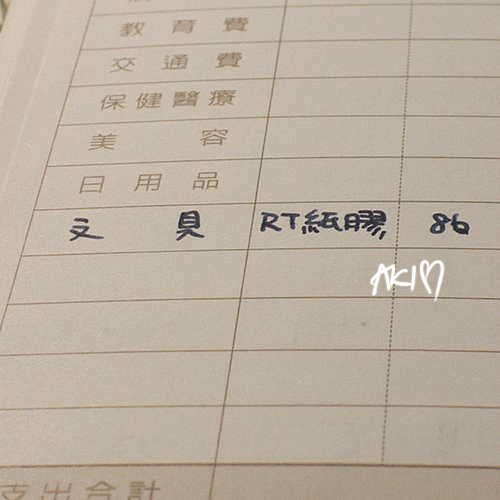 教育費
交通費
保健醫療
美容
日用品
文具 RT紙膠 86
AKI♡
支出合計